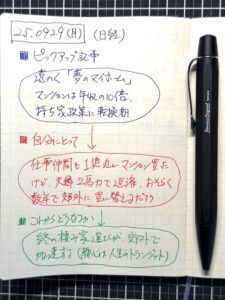 25.0929(月) (日経)
ピックアップ記事
遠のく「夢のマイホーム」
マンションは年収の10倍、
持ち家政策に転換期
自分にとって
仕事仲間も1億近いマンション買った
けど、夫婦2馬力で返済、おそらく
数年で郊外に買い替えるだろう
これからどうなるか
終の棲み家選びが、郊外で
加速する(都心は人生のトランジット)